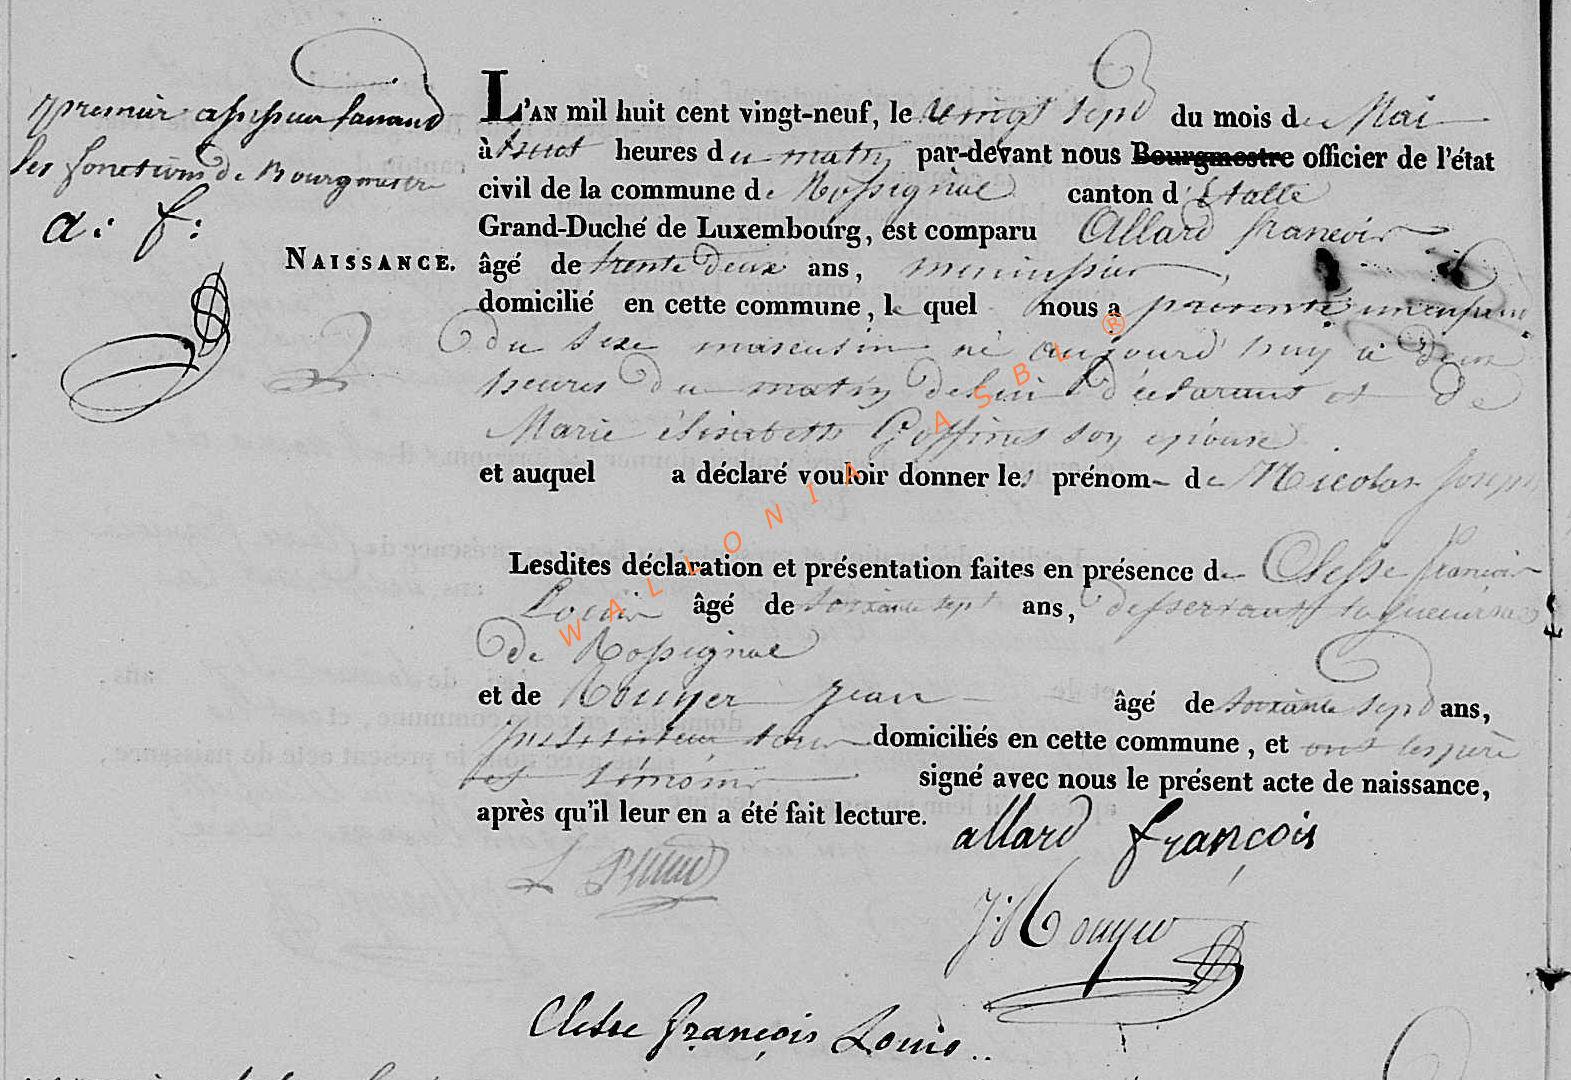 premier assesseur faisant
les fonctions de Bourgmestre
a: f:
NAISSANCE.
L'AN mil huit cent vingt-neuf, le vingt sept du mois de Mai
à huit heures du matin par-devant nous Bourgmestre officier de l'état
civil de la commune de Rossignol canton d'Etalle
Grand-Duché de Luxembourg, est comparu Allard françois
âgé de trente deux ans, menuissier,
domicilié en cette commune, le quel nous a présenté un enfant
du sexe masculin né aujourd'huy à deux
heures du matin de lui déclarant et de
Marie élisabeth Goffinet son épouse
et auquel a déclaré vouloir donner les prénom- de Nicolas Joseph
Lesdites déclaration et présentation faites en présence de Clesse françois
Louis âgé de soixante sept ans, desservant
de Rossignol
et de Rouyer jean âgé de soixante sept ans,
instituteur tous domiciliés en cette commune, et ont les père
et témoins signé avec nous le présent acte de naissance,
après qu'il leur en a été fait lecture.
allard françois
J: Rouyer
Clesse françois Louis..
WALLONIA ASBL ®